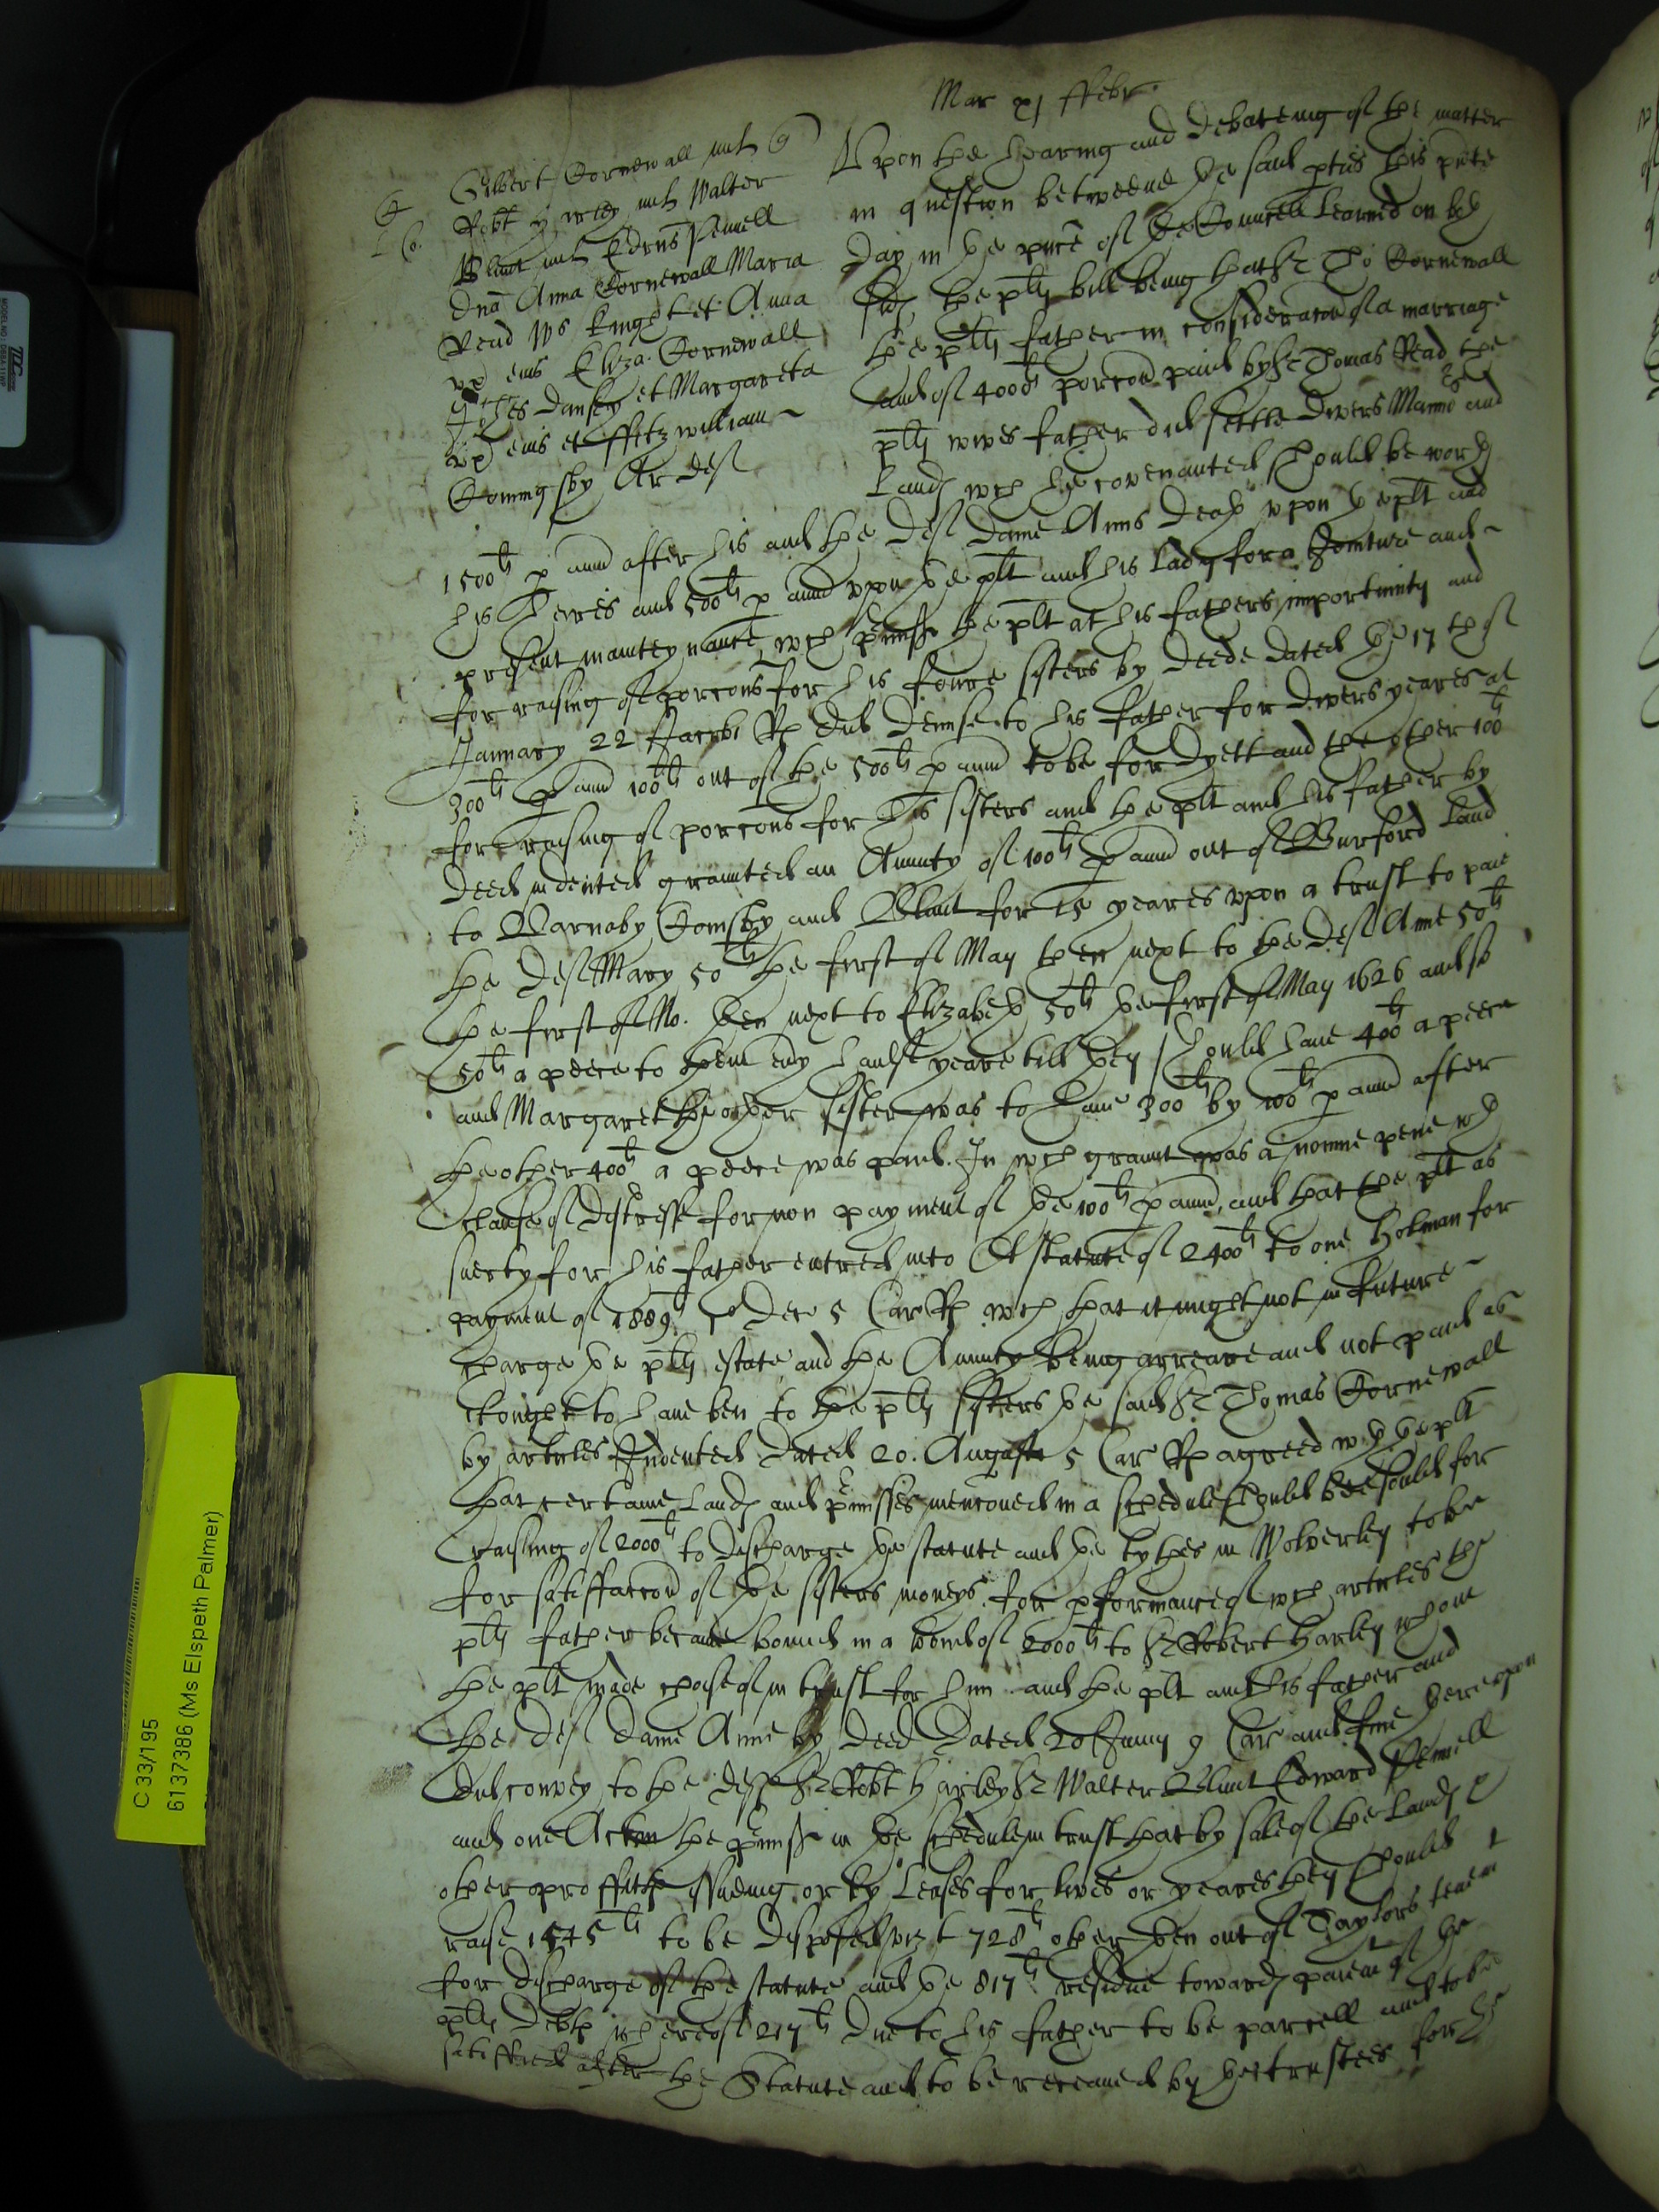 Mar xj ffebr.
Gilbert Cornewall mil q
Robt Harley mil Walter
Blunt mil Edrus Penell
Dna Anna Cornewall Maria
Read Ws Knight et Anna
ux eius Eliza. Cornewall
Dansey et Margareta
ux eius et ffitzwilliam
Coningsby Ar def
Upon the hearing and debateing of the matter
in question betweene the said pties this pnte
day in the pnce of the Councell learned on both
sides the plts bill being that Sr Tho Cornewall
the plts father in consideracon of a marriage
and of 4000li porcon paid by Sr Thomas Read the
plts wives father did settle divers Mannors and
Lands wch he covenanted should be worth
1500li p annu after his and the def dame Anns death upon the plt and
his heires and 500li p annu upon the plt and his Lady for a Jointure and
present maintenance wch premiss the plt at his fathers importunity and
for raising of porcons for his foure sisters by deede dated the 17th of
January 22 Jacobi Rx did demise to his father for divers yeares at
300li p annu 100li out of the 500li p annu to be for dyett and the other 100li
for raising of porcons for his sisters and the plt and his father by
deed indented graunted an Annuity of 100li p annu out of Burford land
to Barnaby Comsby and Blunt for 15 yeares upon a trust to paie
the def Mary 50li the first of May then next to the def Anne 50li
the first of No. then next to Elizabeth 50li the first of May 1626 and so
50li a peece to them every halfe yeare till they should have 400li a peece
and Margaret the other sister was to have 300li by 100li p annu after
the other 400li a peece was paid. In wch graunt was a nomine pene wth
clause of distresse for non payment of the 100li p annu, and that the plt as
suerty for his father entred into A statute of 2400li to one Holman for
payment of 1889li po Dec 5 Car Rx wch that it might not in future
charge the plts estate and the Annuity being arreare and not paid as
itought to have ben to the plts sisters the said Sr Thomas Cornewall
by articles Indented dated 20. August 5 Car Rx agreed wth the plt
that certaine Lands and premisses menconed in a schedule should bee sould for
raising of 2000li to discharge the statute and the tythes in Wolverley to be
for satisfaccon of the sisters moneys. for pformance of wch articles the
plts father became bound in a bond of 2000li to Sr Robert Harley whom
the plt made choise of in trust for him and the plt and his father and
the def dame Anne by deed dated 20 Juny 9 Car and fine thereupon
did convey to the deffs Sr Robt Harley Sr Walter Blunt Edward Penell
and one Acton the premiss in the schedule in trust that by sale of the Lands
other proffitts issueing or by Leases for lives or yeares they should
raise 1545li to be disposed vizt 728li other then out of Taylors tenemt
for discharge of the statute and the 817li residue towards paiemt of the
plts debts whereof 217li due to his father to be parcell and to be
satisfied after the Statute and to be receaved by the trustees for
C 33/195
6137386 (Ms Elspeth Palmer)